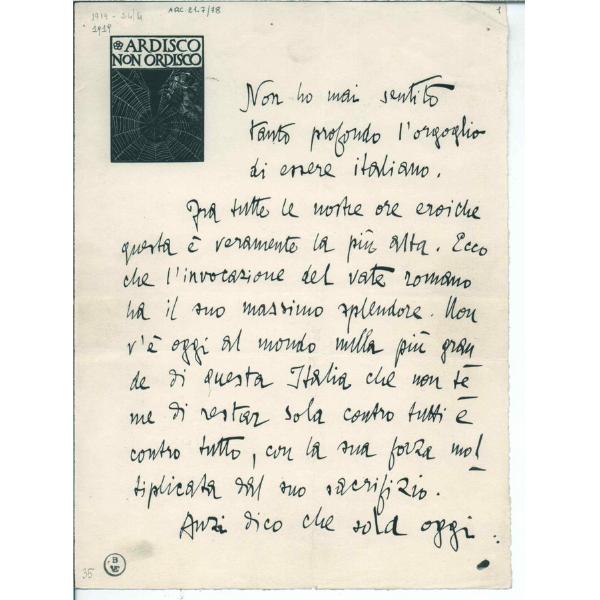 1919 - 24/4
1919
ARC. 21.7/78
1
ARDISCO
NON ORDISCO
Non ho mai sentito
tanto profondo l'orgoglio
di essere italiano.
Fra tutte le nostre ore eroiche
questa è veramente la più alta. Ecco
che l'invocazione del vate romano
ha il suo massimo splendore. Non
v'è oggi al mondo nulla più gran
de di questa Italia che non te
me di restar sola contro tutti e
contro tutto, con la sua forza mol
tiplicata dal suo sacrifizio.
Anzi dico che sola oggi
35
B
VE